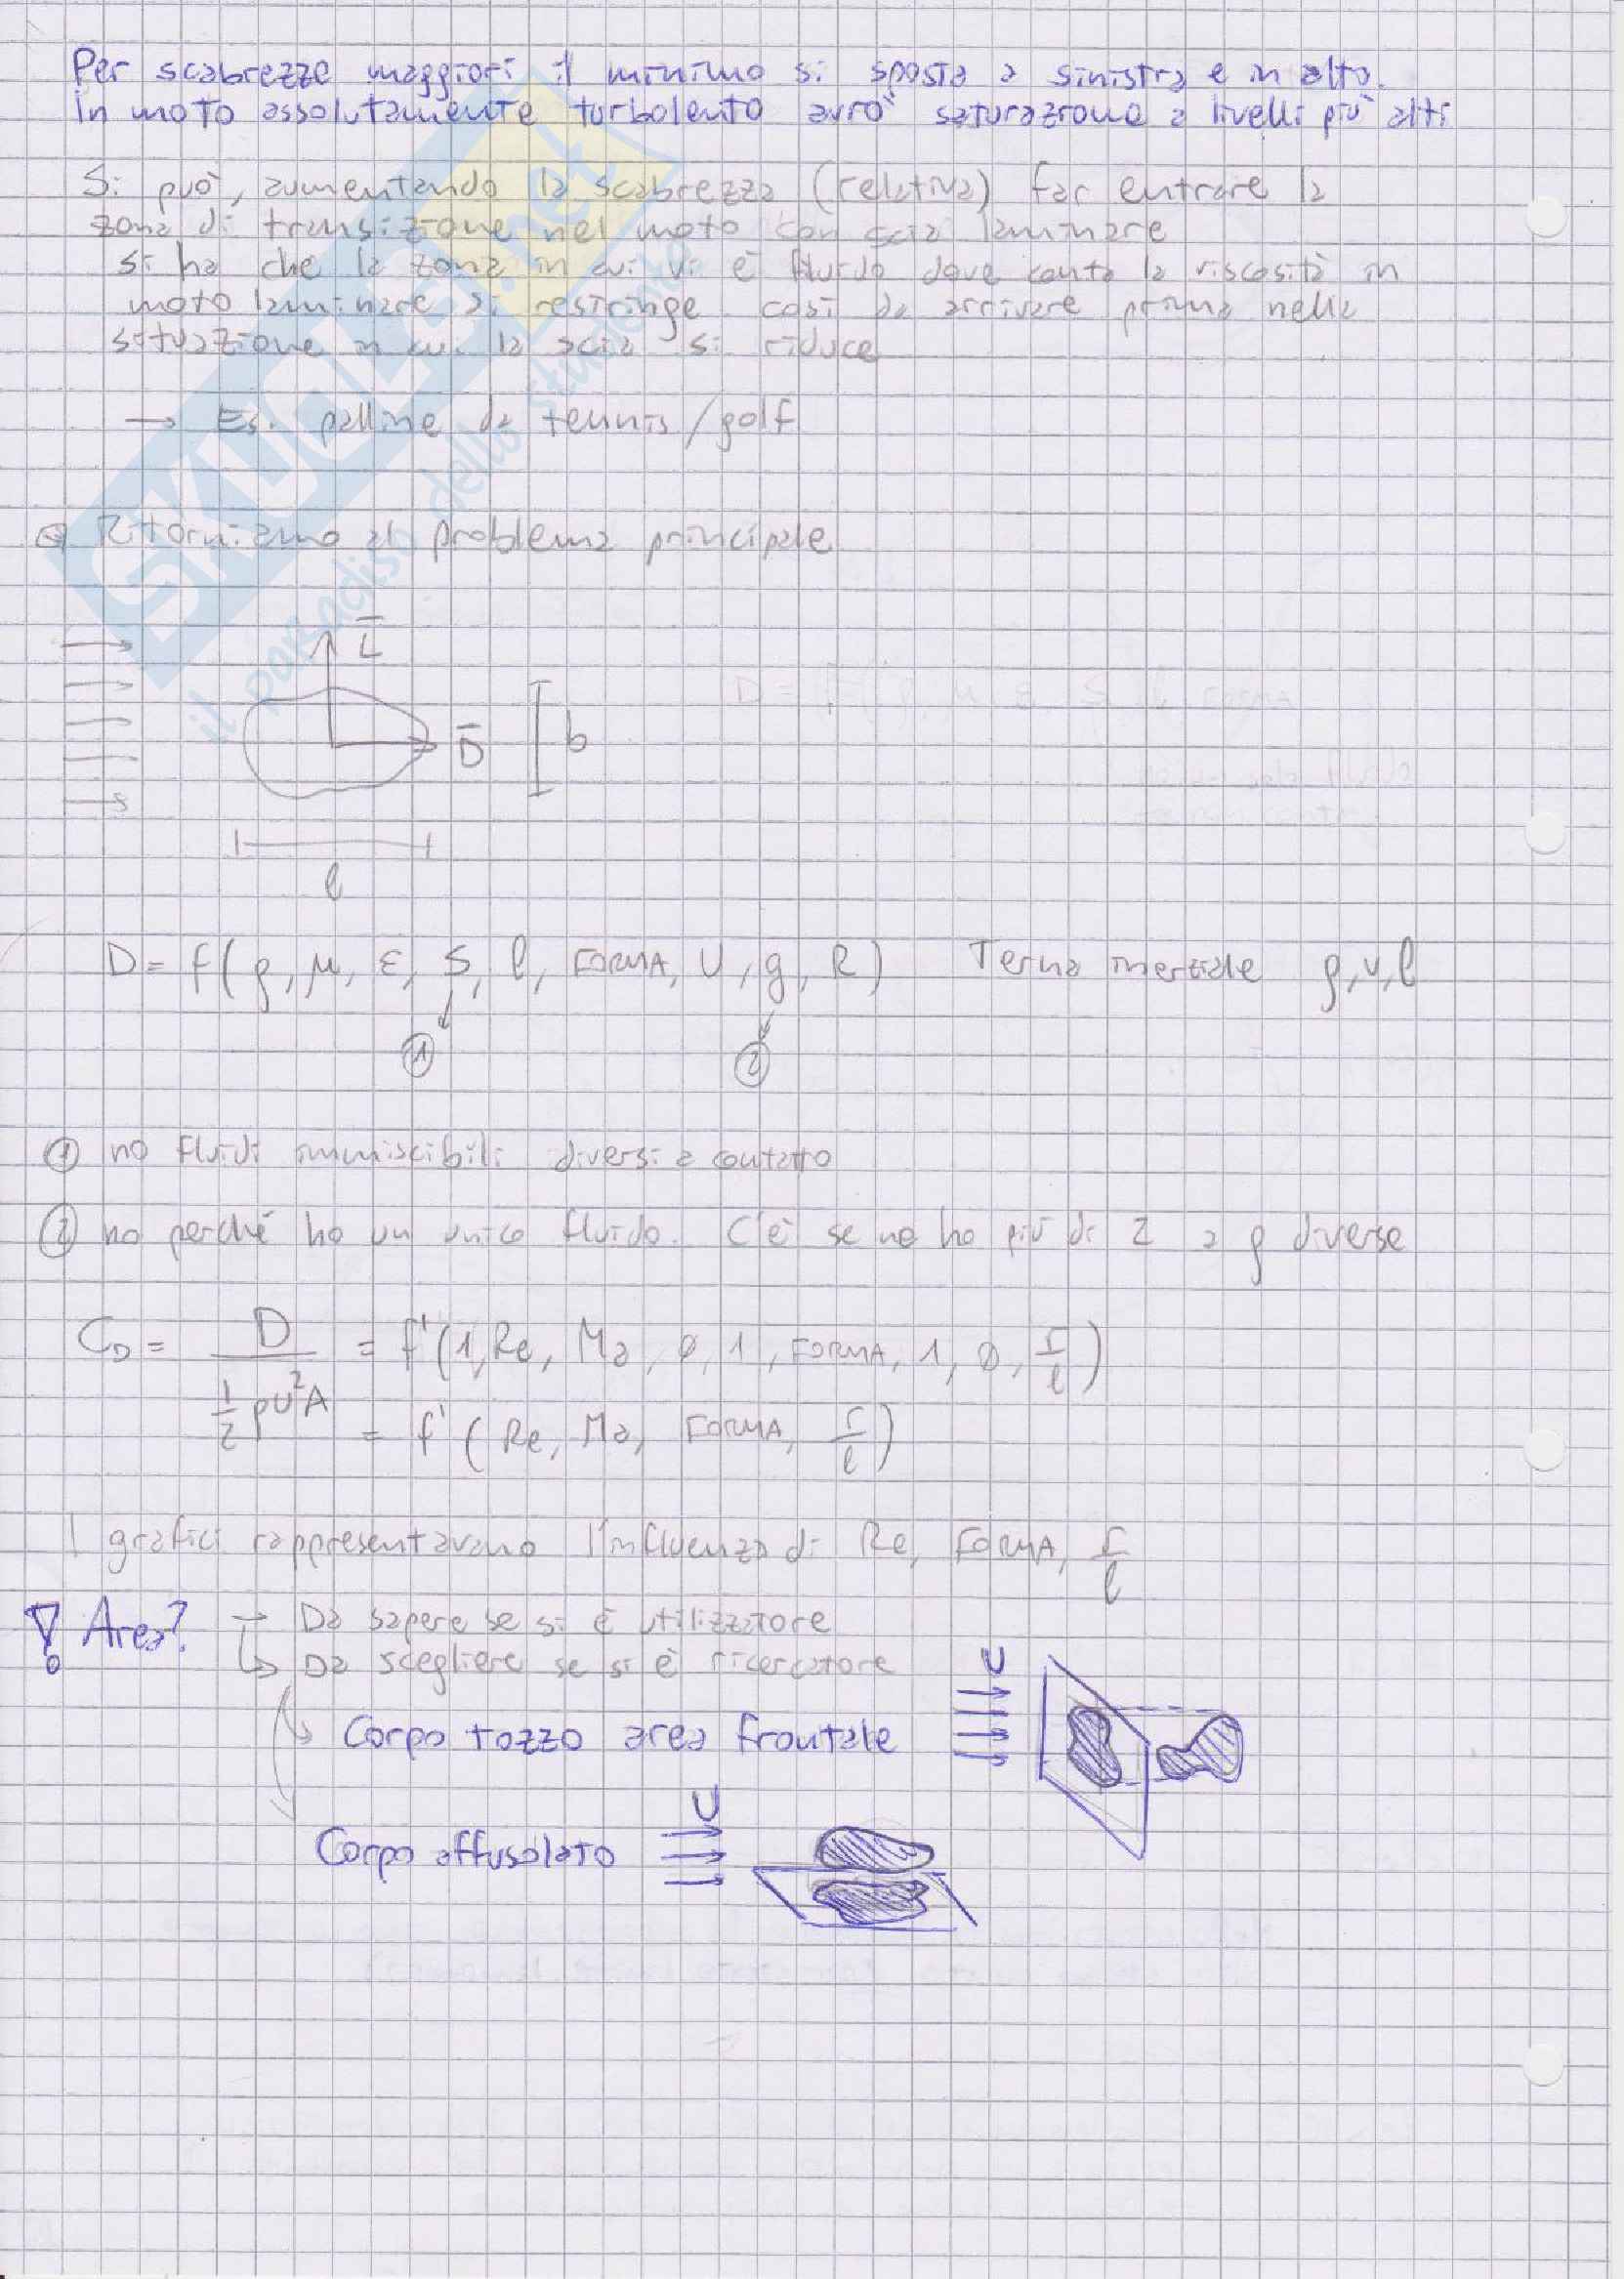 Per scabrezze maggiori il minimo si sposta a sinistra e in alto.
In moto assolutamente turbolento avrò saturazione a livelli più alti
Si può, aumentando la scabrezza (relativa) far entrare la
zona di transizione nel moto con scia laminare
si ha che la zona in cui vi è fluido dove conta la viscosità in
moto laminare si restringe così da arrivare prima nella
situazione in cui la scia si riduce
→ Es. palline da tennis/golf
Ritorniamo al problema principale
L̅
D̅
b
l
D = f(ρ, μ, ε, S, l, FORMA, U, g, R) Terna inerziale ρ, v, l
①
②
① no fluidi immiscibili diversi a contatto
② no perché ho un unico fluido. C'è se ne ho più di 2 a ρ diverse
C_D = D / (1/2 ρU²A) = f'(1, Re, Ma, 0, 1, FORMA, 1, 0, r/l)
= f'(Re, Ma, FORMA, r/l)
I grafici rappresentavano l'influenza di Re, FORMA, r/l
! Area? → Da sapere se si è utilizzatore
↳ Da scegliere se si è ricercatore
U
Corpo tozzo area frontale
U
Corpo affusolato
SKUOLA.net
il paradiso dello studente